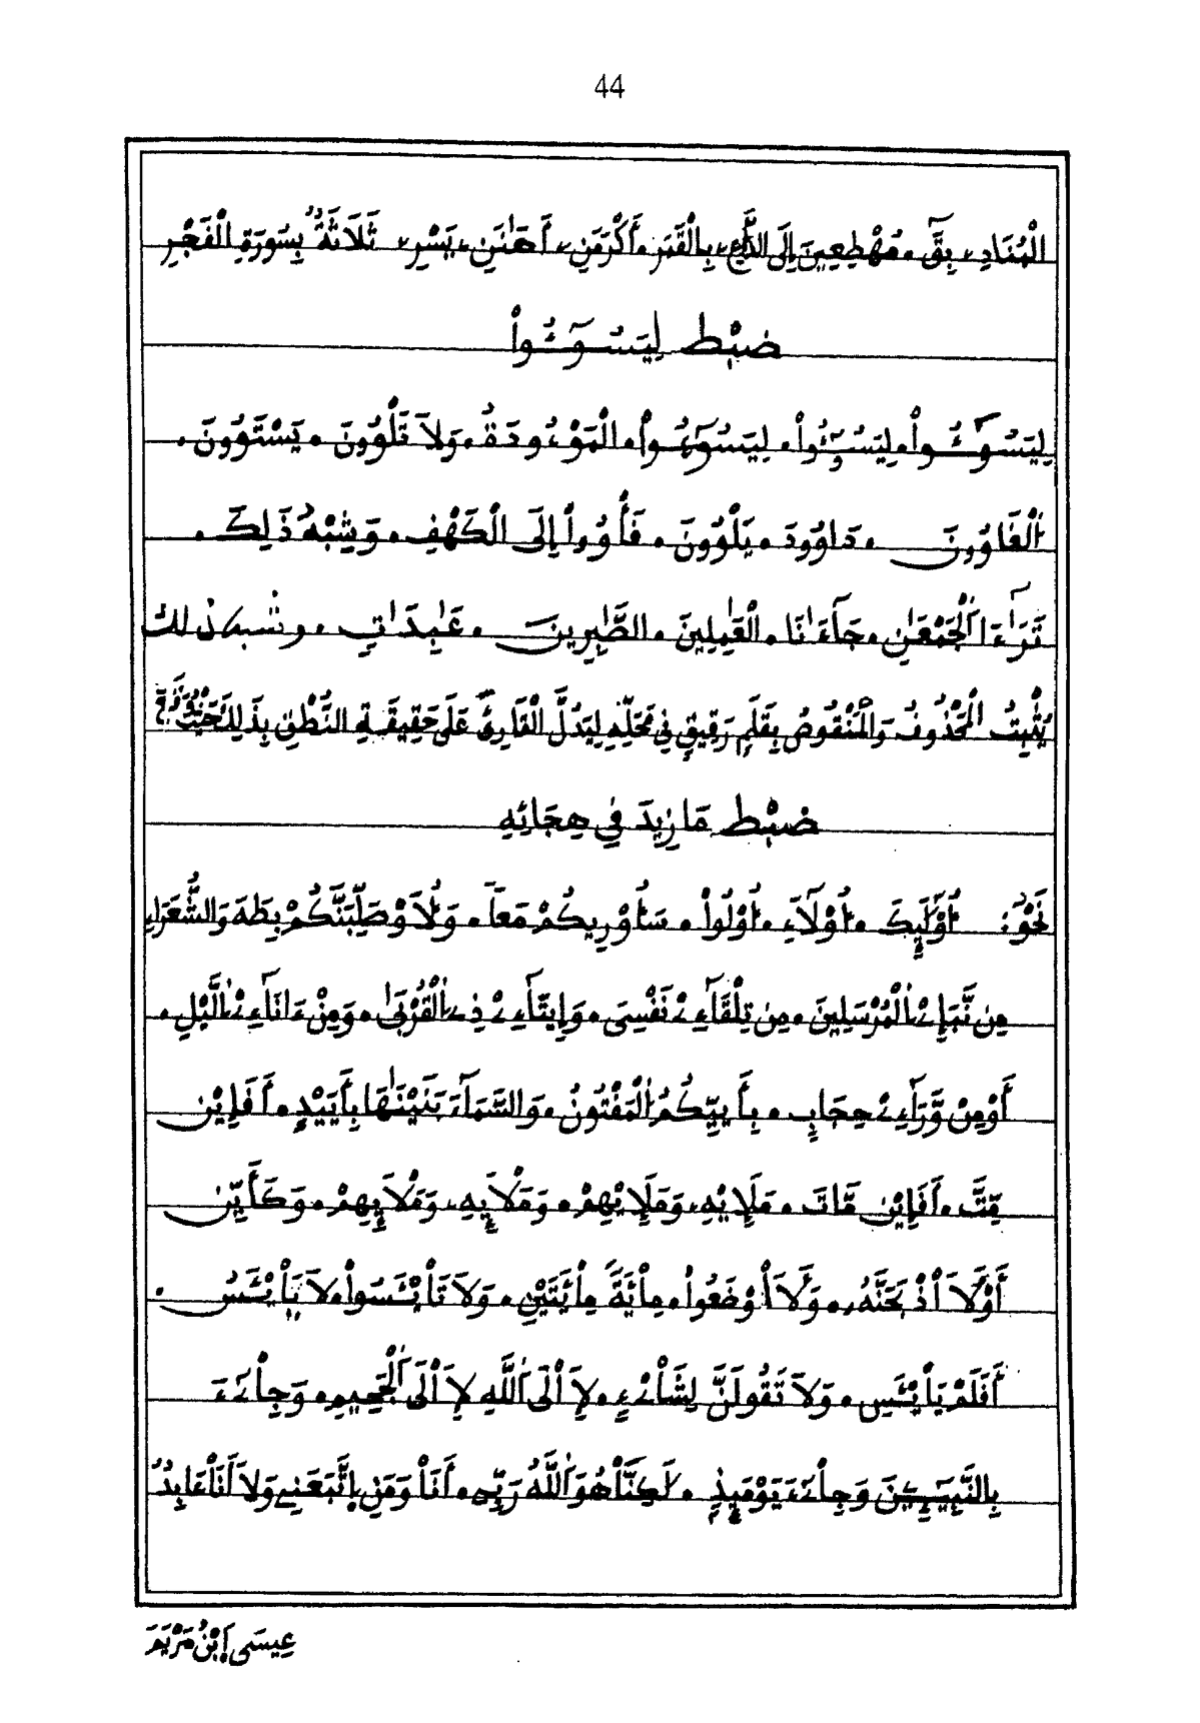 44
الْمُنَادِ بِقَّ مُهْطِعِينَ إِلَى الدَّاعِ بِالْقَمَرِ أَكْرَمَنِ أَهَٰنَنِ يَسْرِ ثَلَاثَةٌ بِسُورَةِ الْفَجْرِ
ضَبْط لِيَسُـۥٓـُٔواْ
لِيَسُـۥٓـُٔواْ لِيَسُوٓءُواْ لِيَسُوٓءُواْ الْمَوْءُودَةُ وَلَا تَلْوُونَ يَسْتَوُونَ
اَلْغَاوُونَ دَاوُودَ يَلْوُونَ فَأْوُواْ إِلَى الْكَهْفِ وَشِبْهُ ذَلِكَ
تَرَٰٓءَا اَلْجَمْعَٰنِ جَآءَٰنَا الْعَٰمِلِينَ الصَّٰبِرِينَ عَٰبِدَٰتٍ وشبه ذلك
يُثْبِتُ الْمَحْذُوفُ وَالْمَنْقُوصُ بِقَلَمٍ رَقِيقٍ فِي مَحَلِّهِ لِيَدُلَّ الْقَارِئَ عَلَى حَقِيقَةِ النُّطْقِ بِذَلِكَ
ضَبْط مَا زِيدَ فِي هِجَائِهِ
نَحْوُ: أُوْلَٰٓئِكَ أُوْلَآءِ أُوْلُواْ سَأُوْرِيكُمْ مَعاً وَلَأُوْصَلِّبَنَّكُمْ بِطَهَ وَالشُّعَرَاءِ
مِن نَّبَإِيْ اِلْمُرْسَلِينَ مِن تِلْقَآءِيْ نَفْسِيَ وَإِيتَآءِيْ ذِي اِلْقُرْبَىٰ وَمِنْ ءَانَآءِيْ اِلَّيْلِ
أَوْ مِنْ وَّرَآءِيْ حِجَابٍ بِأَييِّكُمُ اُلْمَفْتُونُ وَالسَّمَآءَ بَنَيْنَٰهَا بِأَيَيْدٍ أَفَإِيْن
مِّتَّ أَفَإِيْن مَّاتَ مَلَإِيْهِ وَمَلَإِيْهِمْ وَمَلَإِيْهِ وَمَلَإِيْهِمْ وَكَأَيِّن
أَوْ لَأَاْذْبَحَنَّهُۥ وَلَأَاْوْضَعُواْ مِاْئَةً مِاْئَتَيْنِ وَلَا تَاْيْـَٔسُواْ لَا يَاْيْـَٔسُ
أَفَلَمْ يَاْيْـَٔسِ وَلَا تَقُولَنَّ لِشَاْيْءٍ لَإِاْلَى اَللَّهِ لَإِاْلَى اَلْجَحِيمِ وَجِاْيٓءَ
بِالنَّبِيٓـِٕينَ وَجِاْيٓءَ يَوْمَئِذٍ لَٰكِنَّاْ هُوَ اَللَّهُ رَبِّي أَنَاْ وَمَنِ اِتَّبَعَنِي وَلَا أَنَاْ عَابِدٌ
عِيسَى اَبْنُ مَرْيَمَ